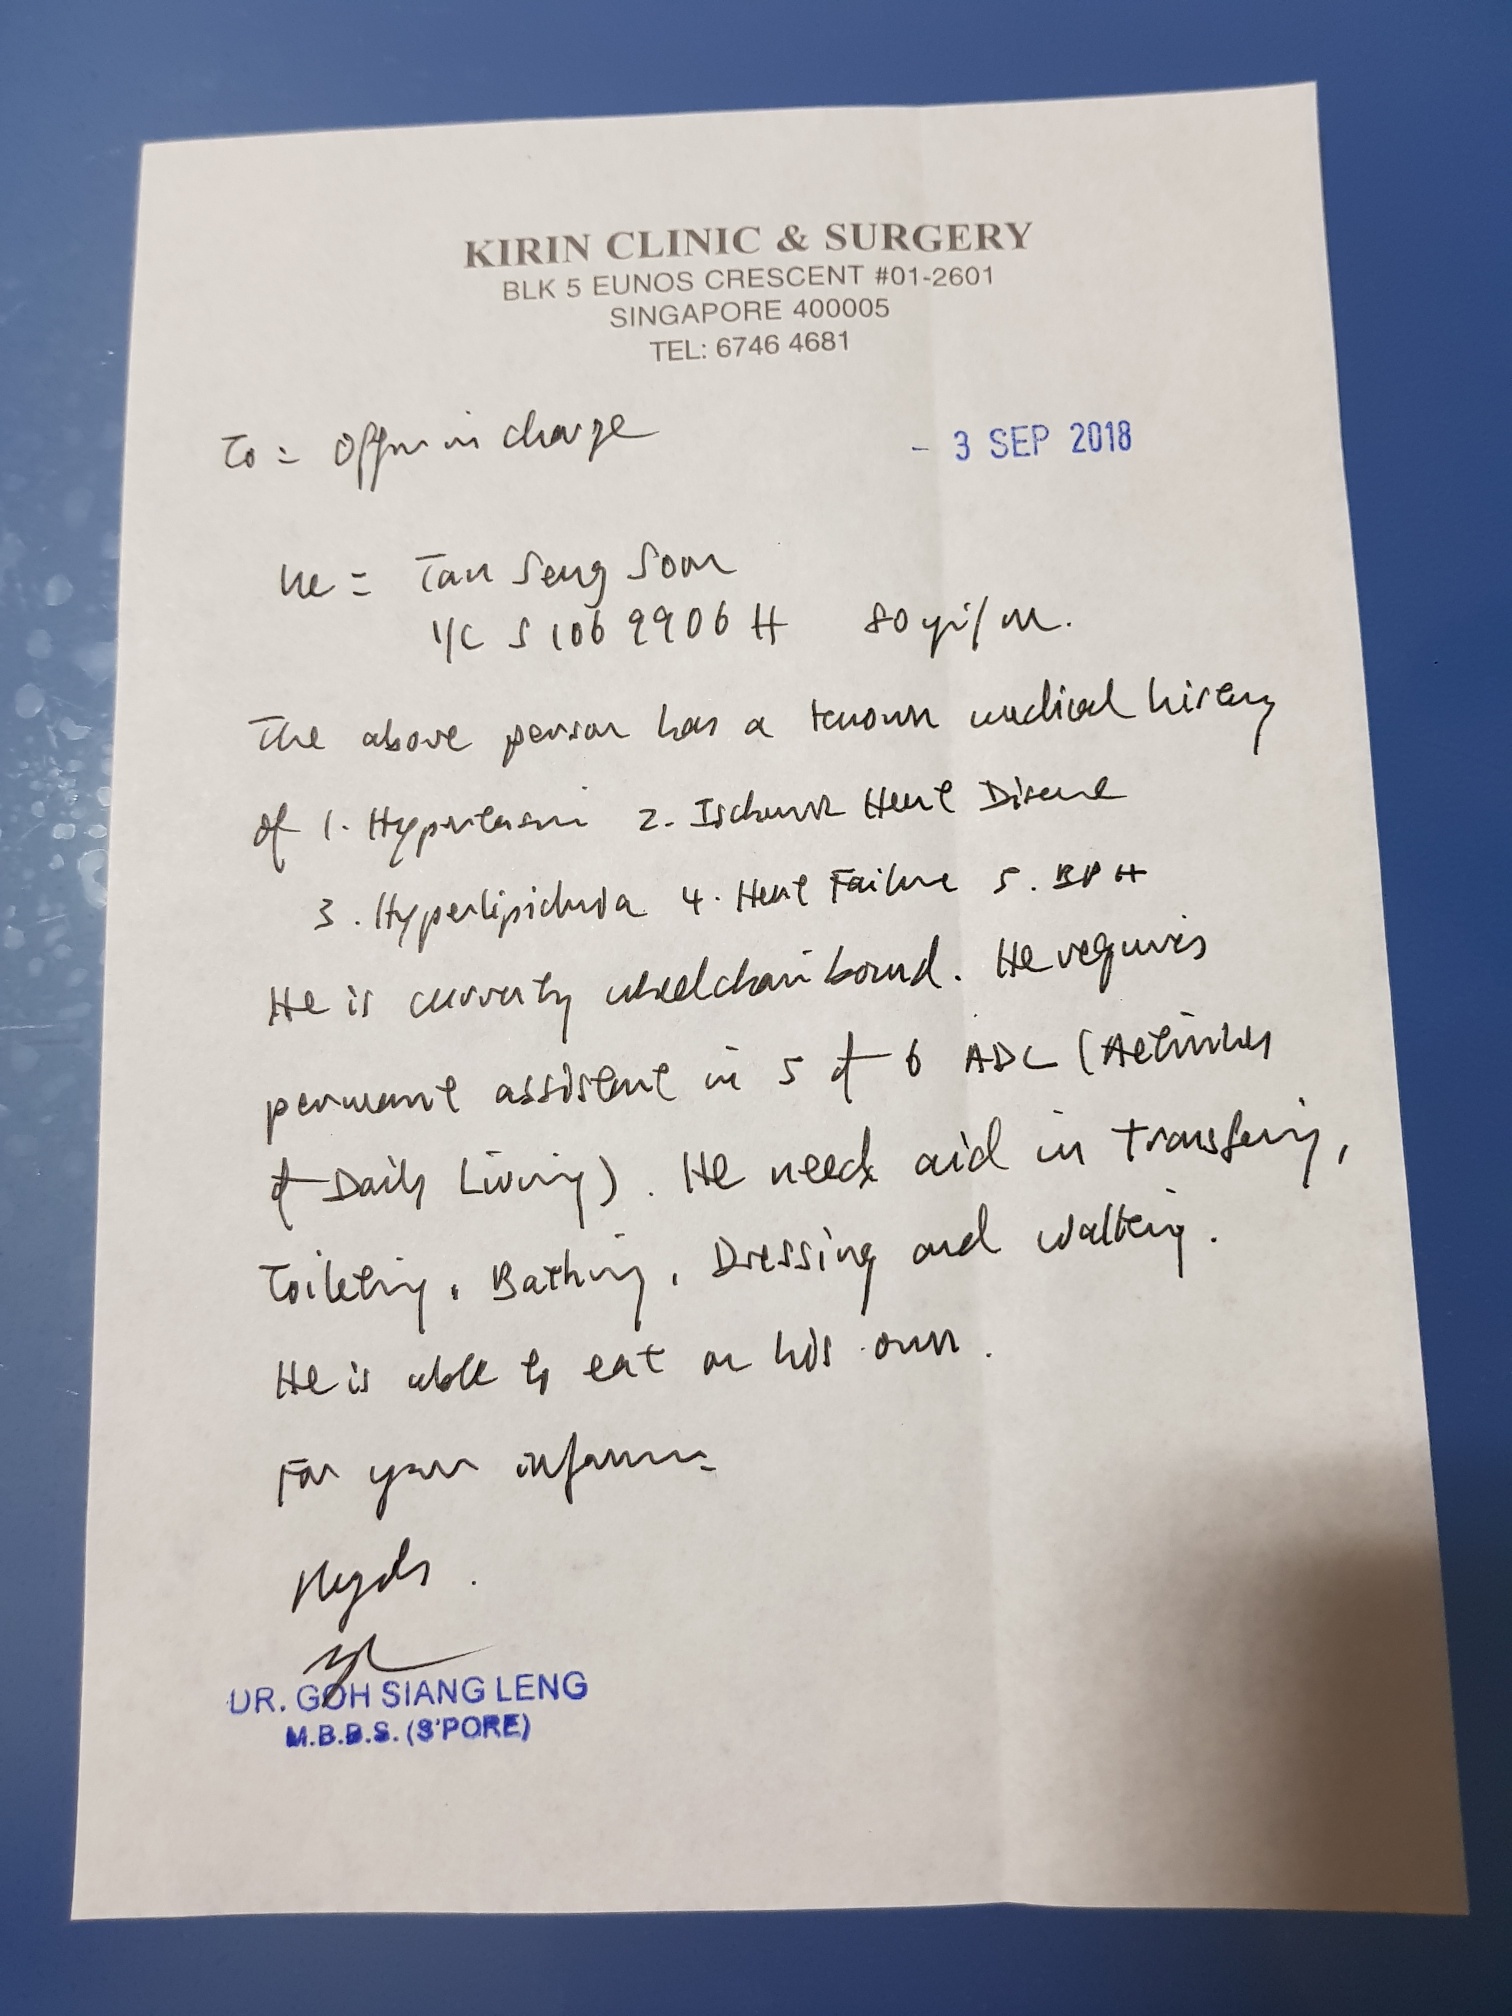 KIRIN CLINIC & SURGERY
BLK 5 EUNOS CRESCENT #01-2601
SINGAPORE 400005
TEL: 6746 4681
To = Officer in charge
- 3 SEP 2018
Re = Tan Seng Soon
I/C S 1069906 H 80 yr/M.
The above person has a known medical history
of 1. Hypertension 2. Ischemic Heart Disease
3. Hyperlipidemia 4. Heart Failure 5. BPH
He is currently wheelchair bound. He requires
permanent assistant in 5 of 6 ADL (Activities
of Daily Living). He need aid in transfering,
Toileting, Bathing, Dressing and walking.
He is able to eat on his own.
For your information
Regds.
DR. GOH SIANG LENG
M.B.B.S. (S'PORE)